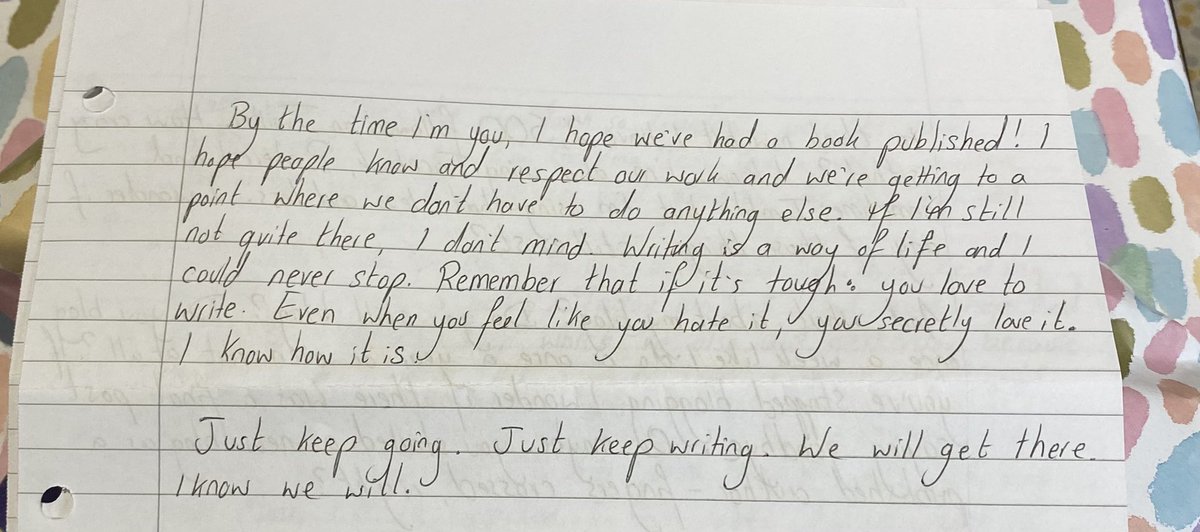 By the time I'm you, I hope we've had a book published! I
hope people know and respect our work and we're getting to a
point where we don't have to do anything else. If I'm still
not quite there, I don't mind. Writing is a way of life and I
could never stop. Remember that if it's tough: you love to
write. Even when you feel like you hate it, you secretly love it.
I know how it is.
Just keep going. Just keep writing. We will get there.
I know we will.